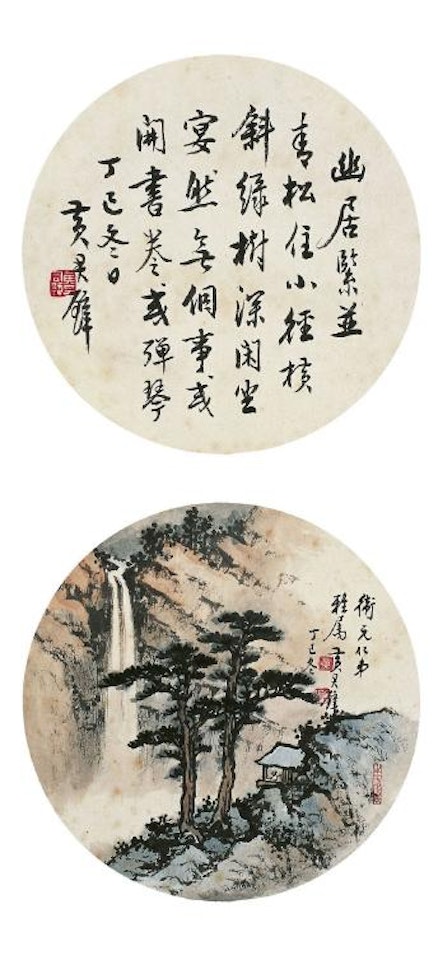 幽居緊並
青松住小徑橫
斜綠樹深閑坐
宴然無個事或
開書卷或彈琴
丁巳冬日
黃君璧
衛元仁弟
雅屬黃君璧
丁巳冬